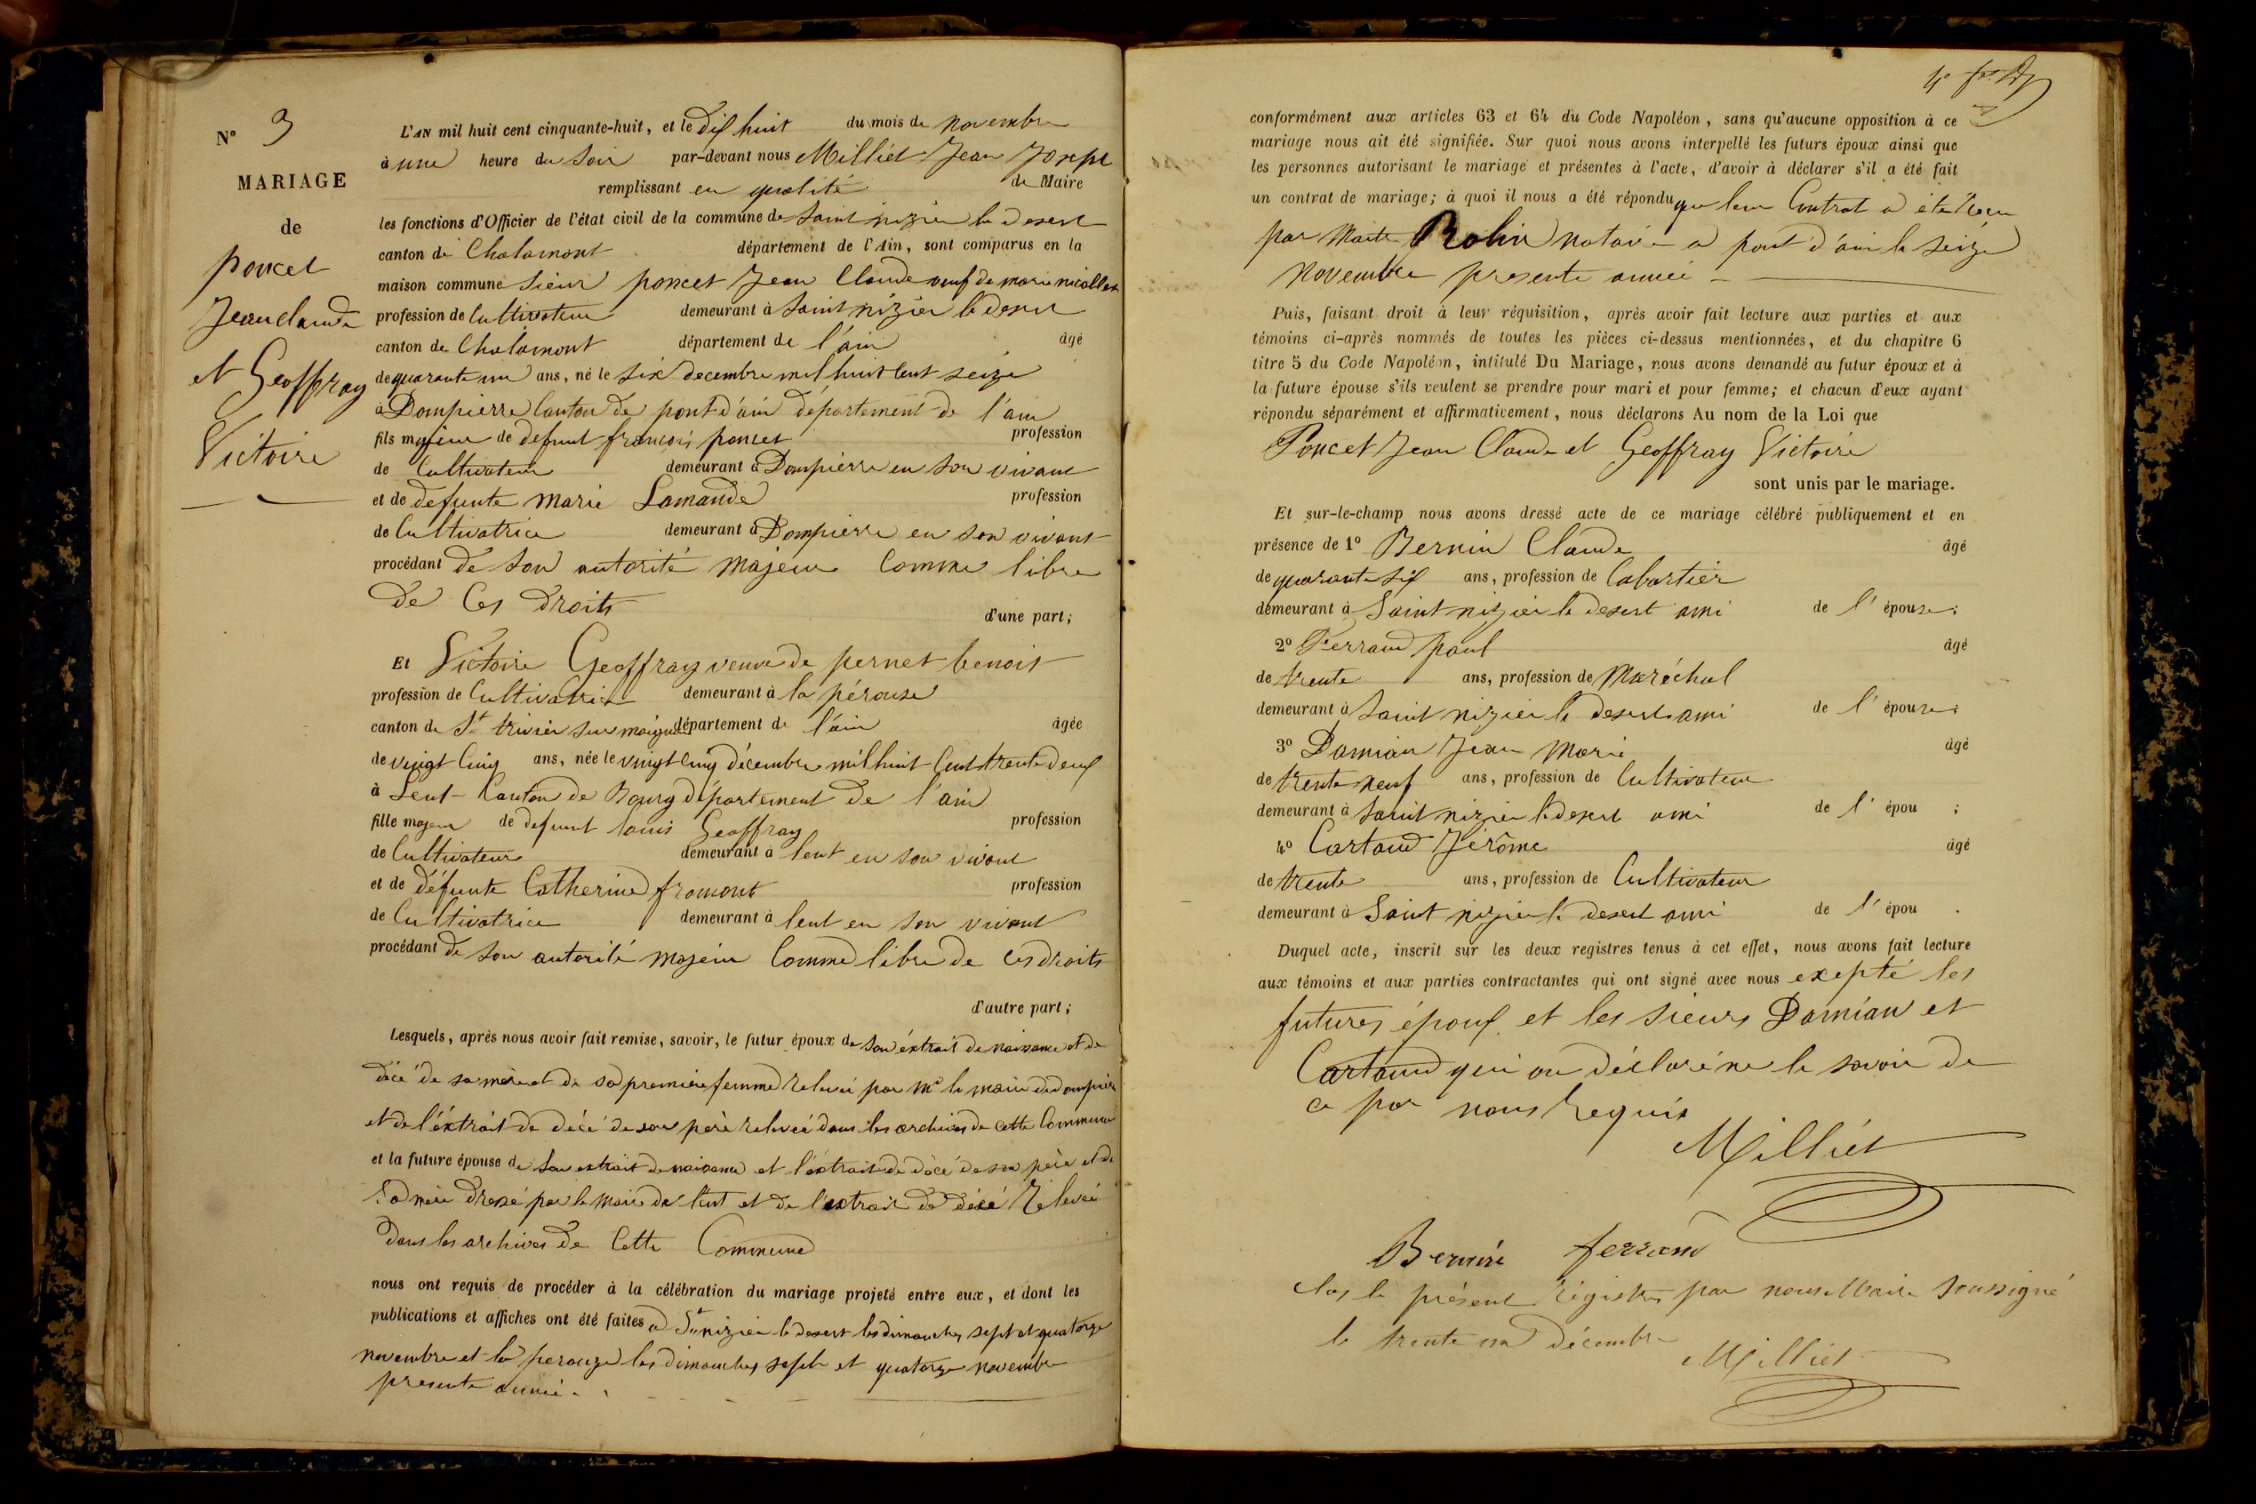 N° 3
MARIAGE
de
poncet
Jean claude
et Geoffray
Victoire
L'AN mil huit cent cinquante-huit, et le dix huit du mois de novembre
à une heure du Soir par-devant nous Milliet Jean Joseph
remplissant en qualité de Maire
les fonctions d'Officier de l'état civil de la commune de Saint nizier le desert
canton de Chalamont département de l'Ain, sont comparus en la
maison commune Sieur poncet Jean Claude veuf de marie nicollet
profession de Cultivateur demeurant à Saint nizier le desert
canton de Chalamont département de l'ain âgé
de quarante un ans, né le six decembre mil huit cent seize
à Dompierre Canton de pont d'ain département de l'ain
fils majeur de defunt francois poncet profession
de Cultivateur demeurant à Dompierre en son vivant
et de defunte marie Lamande profession
de Cultivatrice demeurant à Dompierre en son vivant
procédant de son autorité majeur Comme libre
de Ces droits
d'une part;
Et Victoire Geoffray veuve de pernet benoit
profession de Cultivatrice demeurant à la pérouse
canton de St trivier sur moignans département de l'ain âgée
de vingt Cinq ans, née le vingt Cinq décembre mil huit Cent trente deux
à Lent Canton de Bourg département de l'ain
fille majeur de defunt louis Geoffray profession
de Cultivateur demeurant à lent en son vivant
et de défunte Catherine fromont profession
de Cultivatrice demeurant à lent en son vivant
procédant de son autorité majeur Comme libre de ces droits
d'autre part;
Lesquels, après nous avoir fait remise, savoir, le futur époux de son éxtrait de naissance et de
décé de sa mère et de sa première femme relevé par Mr le maire de dompierre
et de l'éxtrait de décé de son père relevée dans les archives de cette Commune
et la future épouse de son extrait de naissance et l'extrait de décé de son père et de
Sa mère dressé par le maire de lent et de l'extrait de décé relevée
dans les archives de Cette Commune
nous ont requis de procéder à la célébration du mariage projeté entre eux, et dont les
publications et affiches ont été faites a St nizier le desert les dimanches sept et quatorze
novembre et la perouze les dimanches sept et quatorze novembre
presente année.
conformément aux articles 63 et 64 du Code Napoléon, sans qu'aucune opposition à ce
mariage nous ait été signifiée. Sur quoi nous avons interpellé les futurs époux ainsi que
les personnes autorisant le mariage et présentes à l'acte, d'avoir à déclarer s'il a été fait
un contrat de mariage; à quoi il nous a été répondu que leur Contrat a été recu
par Maitre Rolin notaire a pont d'ain le seize
novembre presente année
Puis, faisant droit à leur réquisition, après avoir fait lecture aux parties et aux
témoins ci-après nommés de toutes les pièces ci-dessus mentionnées, et du chapitre 6
titre 5 du Code Napoléon, intitulé Du Mariage, nous avons demandé au futur époux et à
la future épouse s'ils veulent se prendre pour mari et pour femme; et chacun d'eux ayant
répondu séparément et affirmativement, nous déclarons Au nom de la Loi que
Poncet Jean Claude et Geoffray Victoire
sont unis par le mariage.
Et sur-le-champ nous avons dressé acte de ce mariage célébré publiquement et en
présence de 1° Bernin Claude âgé
de quarante six ans, profession de Cabartier
demeurant à Saint nizier le desert ami de l'épouse;
2° Ferrand paul âgé
de trente ans, profession de Maréchal
demeurant à Saint nizier le desert ami de l'épouse;
3° Damian Jean Marie âgé
de trente neuf ans, profession de Cultivateur
demeurant à Saint nizier le desert ami de l'épou ;
4° Cartaud Jérôme âgé
de trente ans, profession de Cultivateur
demeurant à Saint nizier le desert ami de l'épou .
Duquel acte, inscrit sur les deux registres tenus à cet effet, nous avons fait lecture
aux témoins et aux parties contractantes qui ont signé avec nous excepté les
futures époux et les sieurs Damian et
Cartaud qui on déclaré ne le savoir de
ce par nous Requis
Milliet
Bernin ferrand
Clos le présent régistre par nous Maire Soussigné
le trente un décembre
Milliet